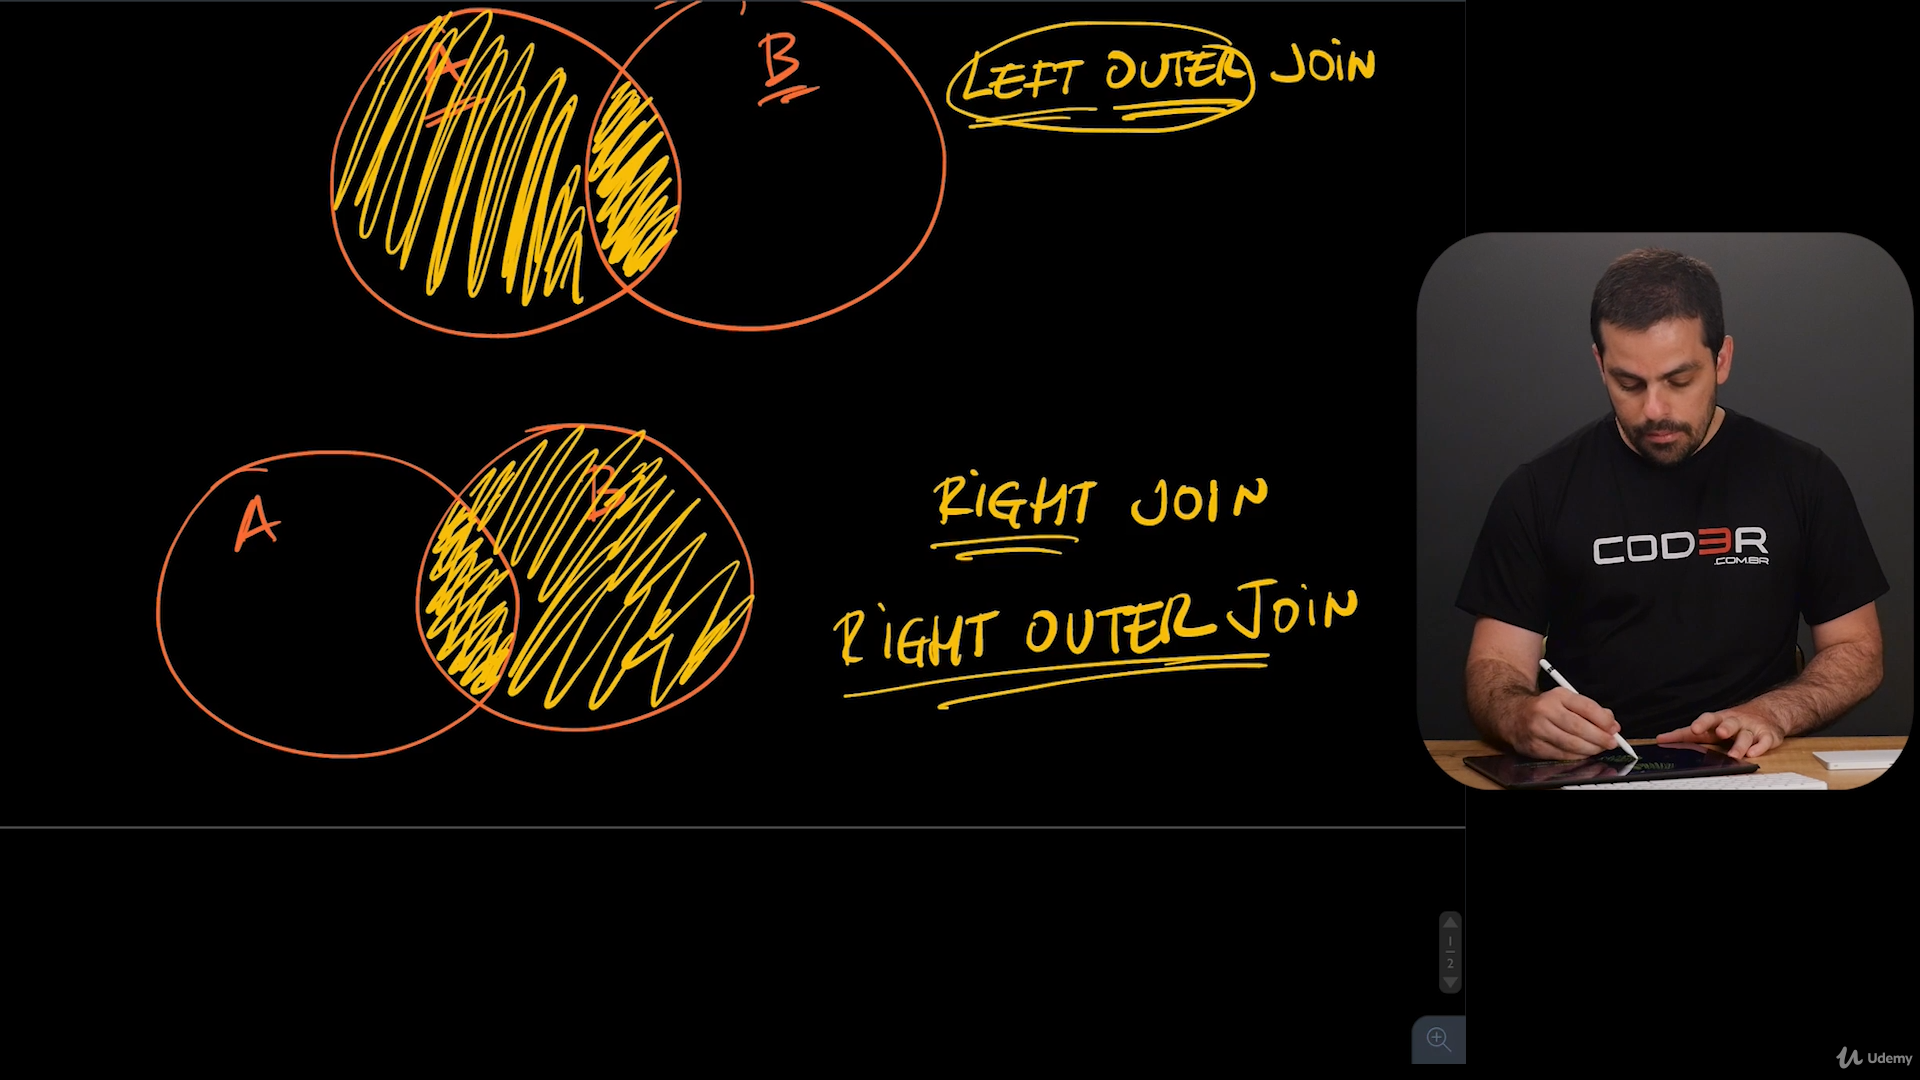 A
B
LEFT OUTER JOIN
A
B
RIGHT JOIN
RIGHT OUTER JOIN
COD3R
.COM.BR
1
2
Udemy